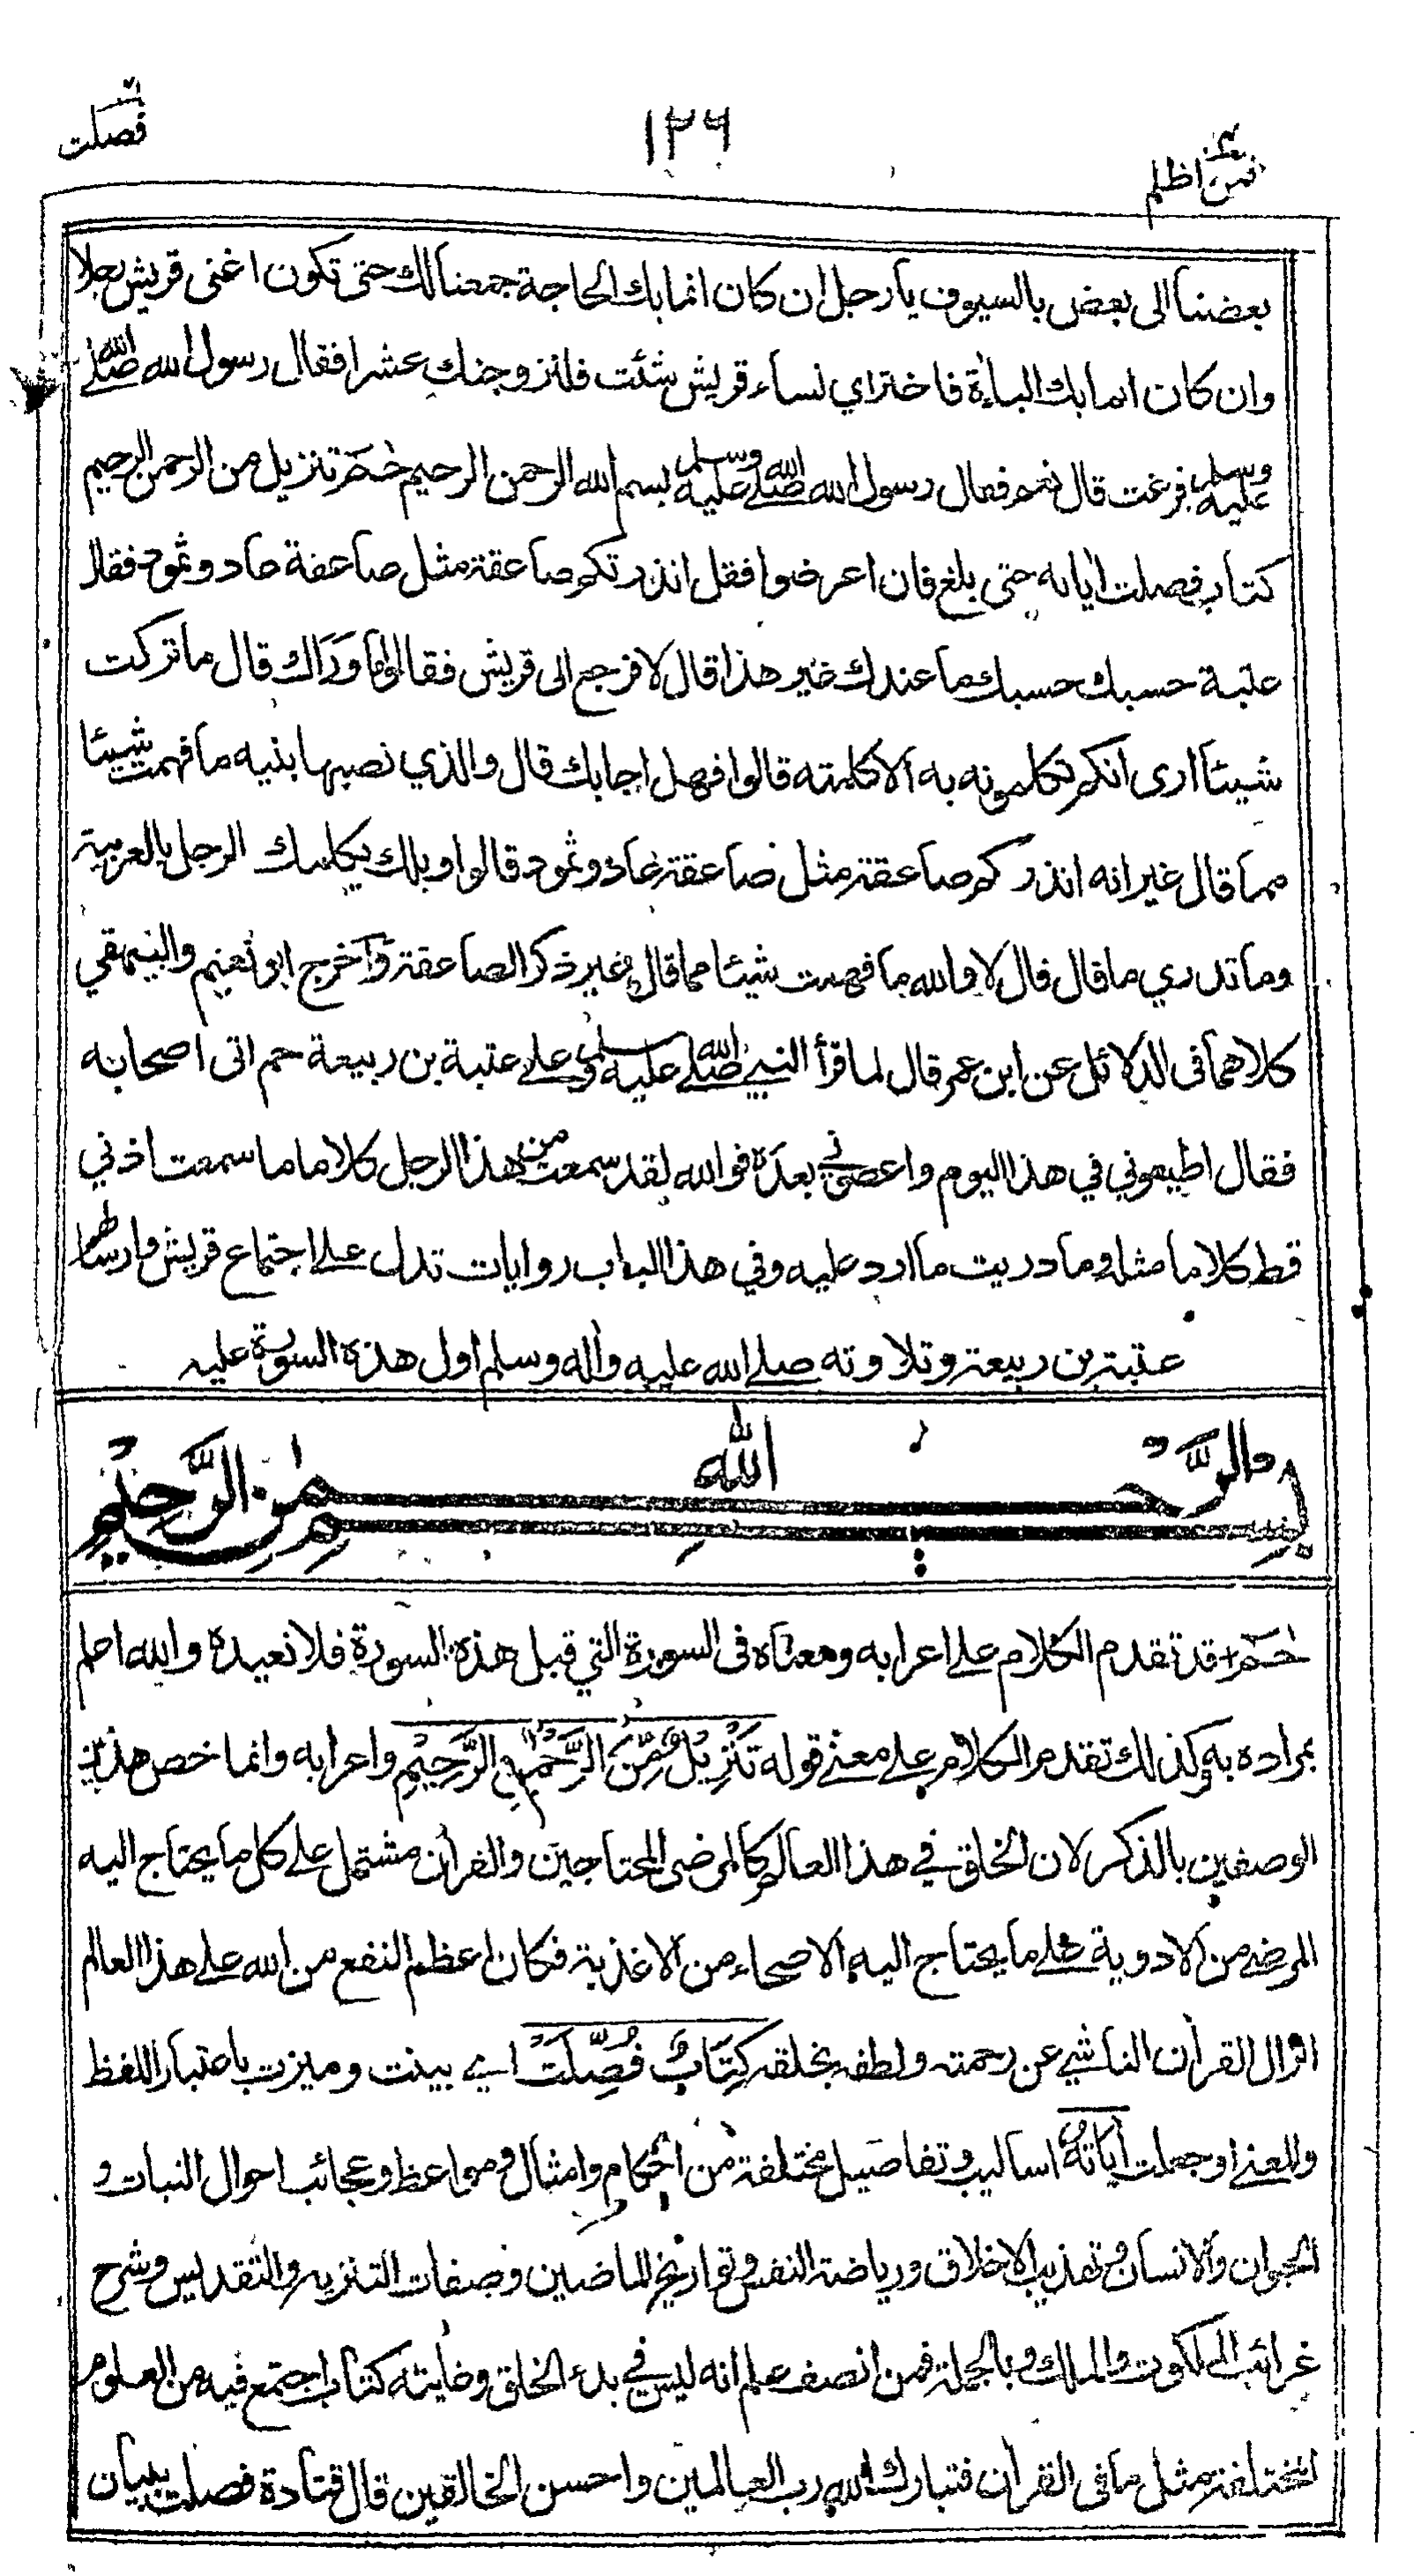 فمن اظلم ١٢٦ فصلت
بعضنا الى بعض بالسيوف يا رجل ان كان انما بك الحاجة جمعنا لك حتى تكون اغنى قريش رجلا
وان كان انما بك الباءة فاختر اي نساء قريش شئت فلنزوجنك عشرا فقال رسول الله صلى الله
عليه وسلم فرغت قال نعم فقال رسول الله صلى الله عليه وسلم بسم الله الرحمن الرحيم حم تنزيل من الرحمن الرحيم
كتاب فصلت اياته حتى بلغ فان اعرضوا فقل انذرتكم صاعقة مثل صاعقة عاد وثمود فقال
عتبة حسبك حسبك ما عندك غير هذا قال لا فرجع الى قريش فقالوا ما وراك قال ما تركت
شيئا ارى انكم تكلمونه به الا كلمته قالوا فهل اجابك قال والذي نصبها بنيه ما فهمت شيئا
مما قال غير انه انذركم صاعقة مثل صاعقة عاد وثمود قالوا ويلك يكلمك الرجل بالعربية
وما تدري ما قال قال لا والله ما فهمت شيئا مما قال غير ذكر الصاعقة وأخرج ابو نعيم والبيهقي
كلاهما في الدلائل عن ابن عمر قال لما قرأ النبي صلى الله عليه وسلم على عتبة بن ربيعة حم اتى اصحابه
فقال اطيعوني في هذا اليوم واعصوني بعده فوالله لقد سمعت من هذا الرجل كلاما ما سمعت اذني
قط كلاما مثله وما دريت ما ارد عليه وفي هذا الباب روايات تدل على اجتماع قريش وارسالهم
عتبة بن ربيعة وتلاوته صلى الله عليه وآله وسلم اول هذه السورة عليه
بسم الله الرحمن الرحيم
حم قد تقدم الكلام على اعرابه ومعناه في السورة التي قبل هذه السورة فلا نعيده والله اعلم
بمراده به وكذلك تقدم الكلام على معنى قوله تَنْزِيلٌ مِّنَ الرَّحْمٰنِ الرَّحِيْمِ واعرابه وانما خص هذين
الوصفين بالذكر لان الخلق في هذا العالم كالمرضى المحتاجين والقرآن مشتمل على كل ما يحتاج اليه
المرضى من الادوية وعلى ما يحتاج اليه الاصحاء من الاغذية فكان اعظم النفع من الله على هذا العالم
انزال القرآن الناشي عن رحمته ولطفه بخلقه كِتَابٌ فُصِّلَتْ اي بينت وميزت باعتبار اللفظ
والمعنى او جعلت آيَاتُهُ اساليب وتفاصيل مختلفة من احكام وامثال ومواعظ وعجائب احوال النبات و
الحيوان والانسان وتهذيب الاخلاق ورياضة النفس وتواريخ الماضين وصفات التنزيه والتقديس وشرح
غرائب الملكوت والملك وبالجملة فمن انصف علم انه ليس في بدء الخلق وغايته كتاب اجتمع فيه من العلوم
المختلفة مثل ما في القرآن فتبارك الله رب العالمين واحسن الخالقين قال قتادة فصلت ببيان